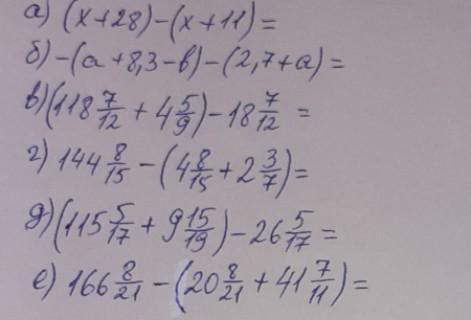 а) (x+28)-(x+11)=
б) -(a+8,3-в)-(2,7+a)=
в) (118 7/12 + 4 5/9) - 18 7/12 =
г) 144 8/15 - (4 8/15 + 2 3/7) =
д) (115 5/17 + 9 15/19) - 26 5/17 =
е) 166 8/21 - (20 8/21 + 41 7/11) =